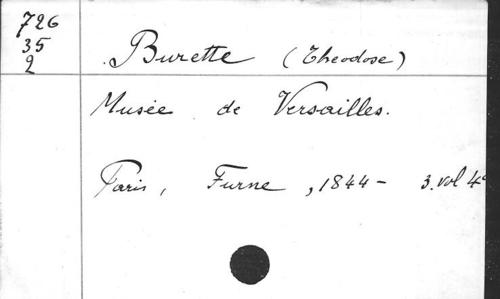 726
35
2
Burette (Théodose)
Musée de Versailles.
Paris, Furne, 1844 - 3. vol 4°